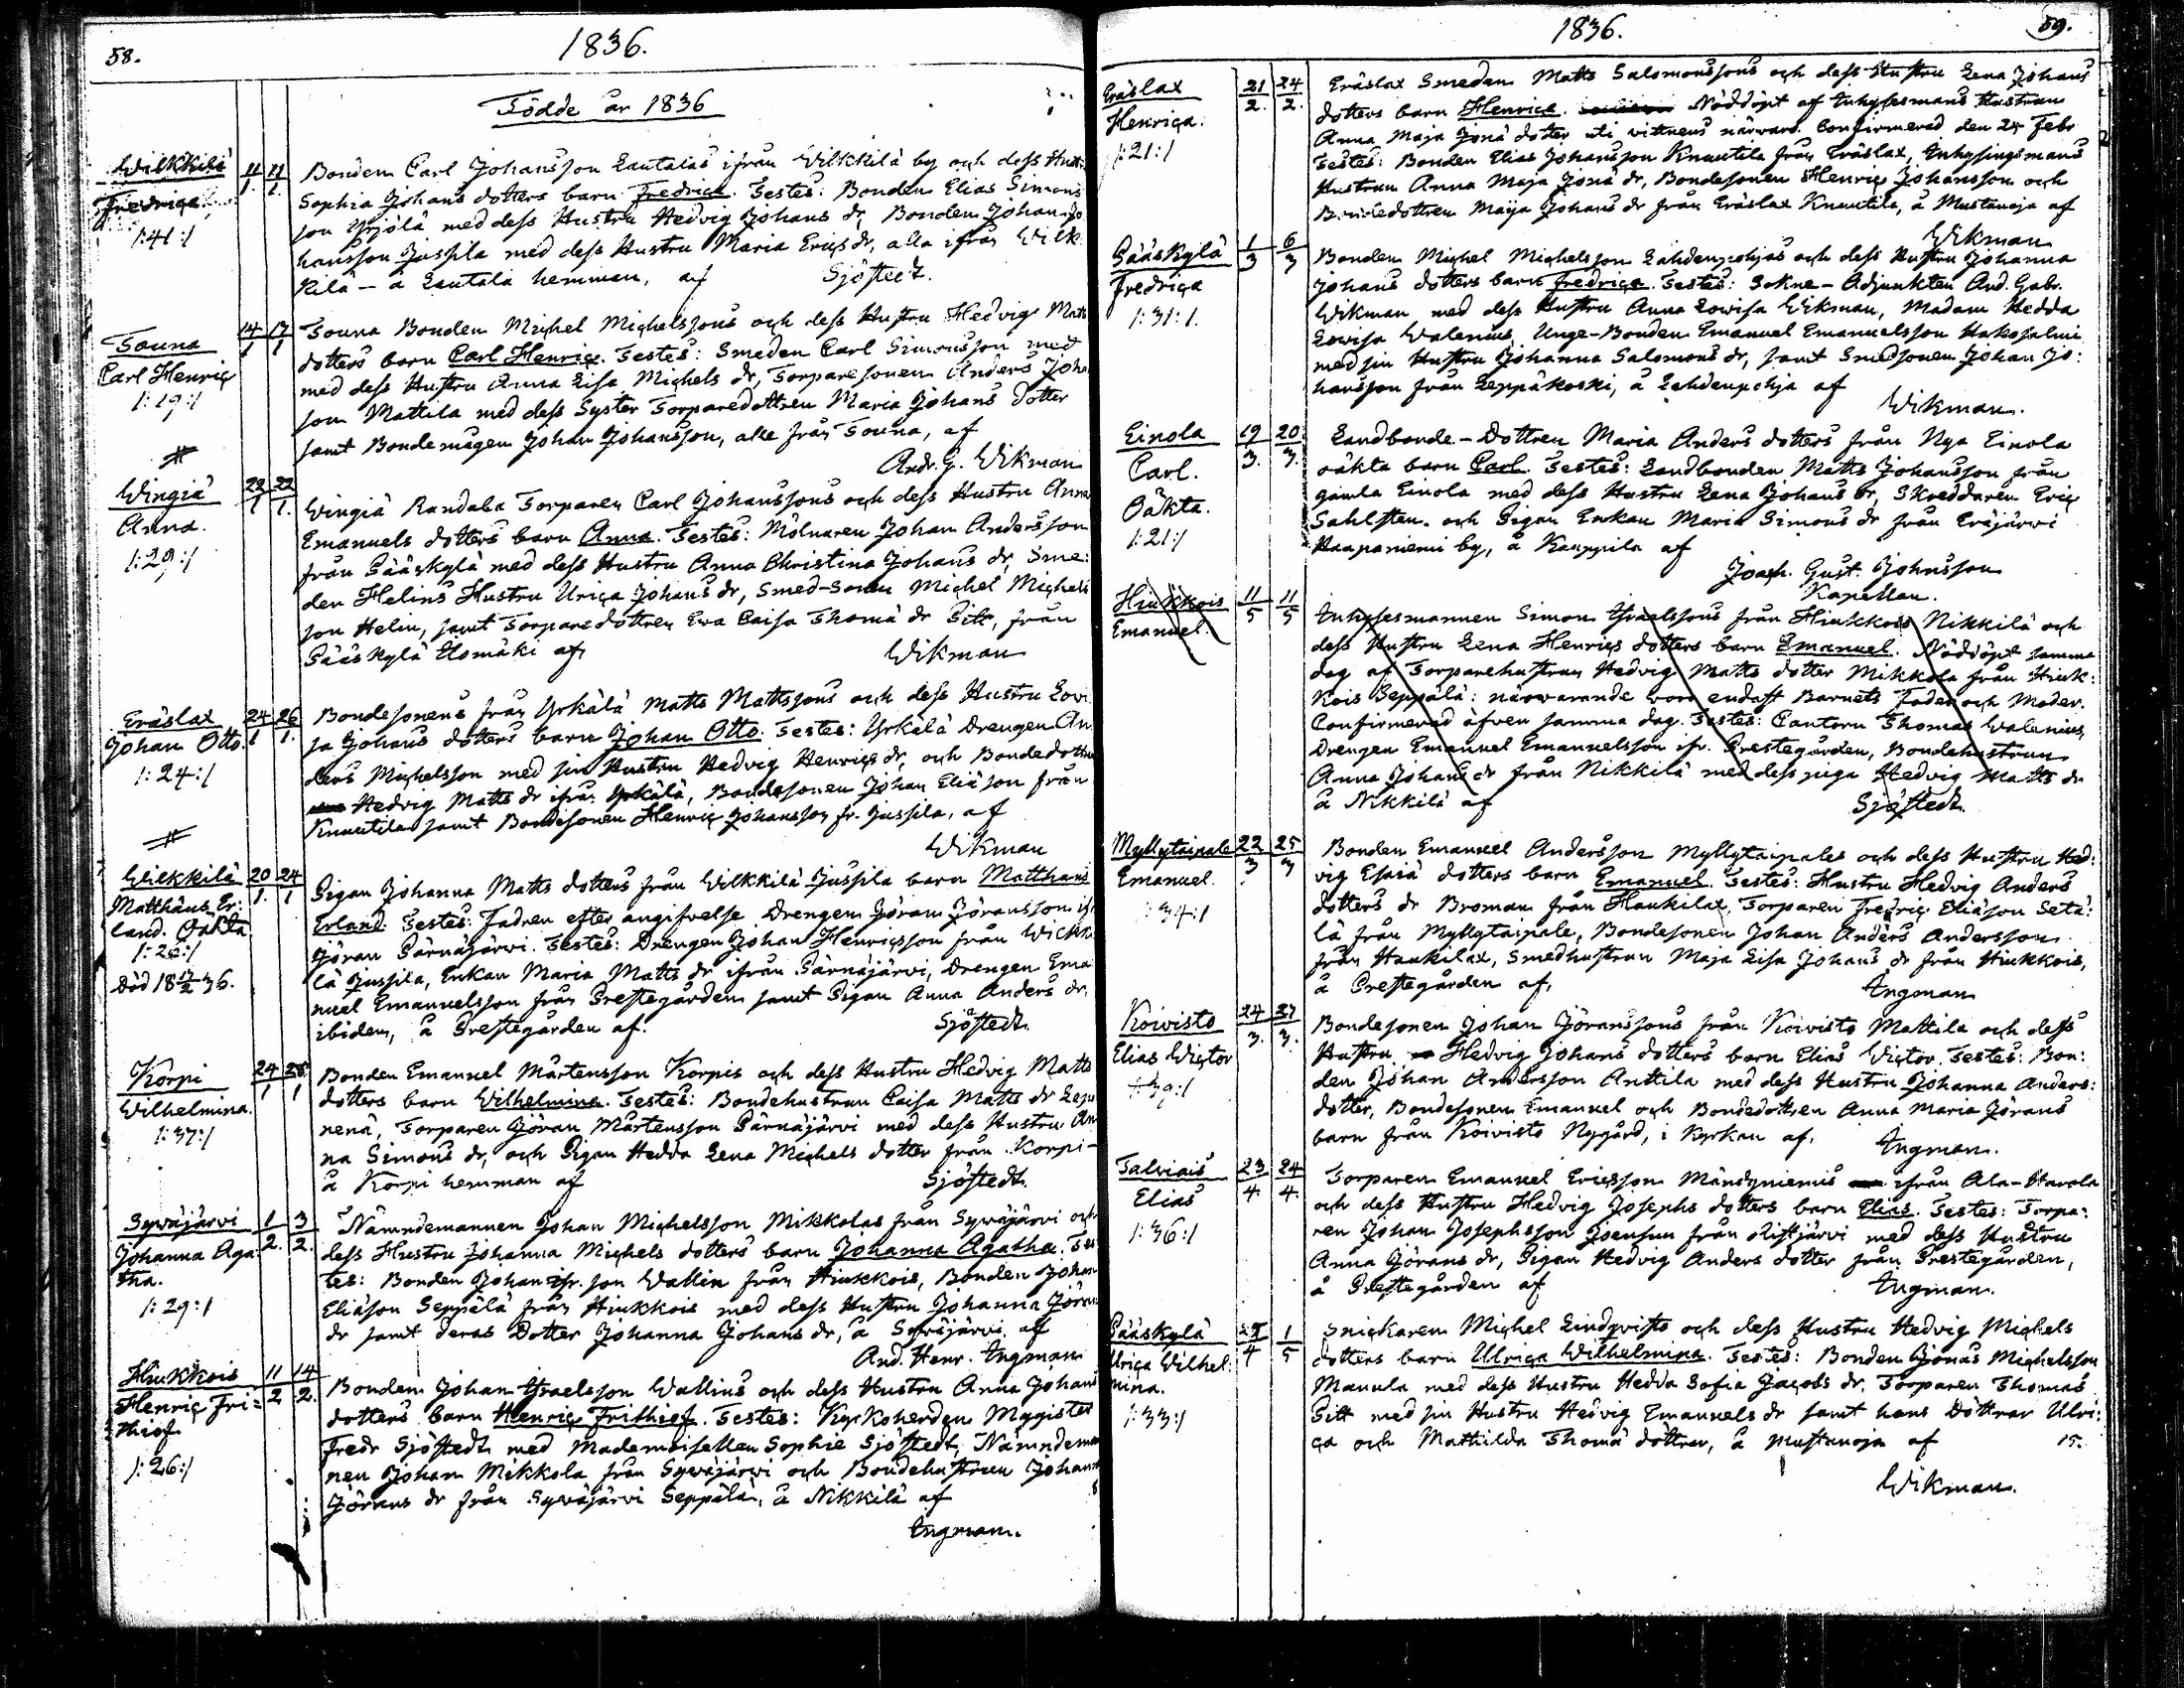 58.
1836.
Födde år 1836
Wilkkilä
Fredrica
/:41:/
11/1 11/1
Bonden Carl Johansson Lautalas ifrån Wilkkilä by och dess Hustru
Sophia Johans dotters barn Fredrica. Testes: Bonden Elias Simons
son Yrjölä med dess Hustru Hedvig Johans dr, Bonden Johan Jo
hansson Jussila med dess Hustru Maria Erics dr, alla ifrån Wilk
kilä - å Lautala hemman, af
Sjöstedt.
Touna
Carl Henric
/:29:/
14/1 17/1
Touna Bonden Michel Michelssons och dess Hustru Hedvig Matts
dotters barn Carl Henric. Testes: Smeden Carl Simonsson med
med dess Hustru Anna Lisa Michels dr, Torparesonen Anders Joha
son Mattila med dess Syster Torparedottren Maria Johans dotter
samt Bondemågen Johan Johansson, alle från Touna, af
Andr. G. Wikman
Wingiä
Anna.
/:29:/
22/1 22/1.
Wingiä Randala Torparen Carl Johanssons och dess Hustru Anna
Emanuels dotters barn Anna. Testes: Mölnaren Johan Andersson
från Pääskylä med dess Hustru Anna Christina Johans dr, Sme:
den Helins Hustru Ulrica Johans dr, Smed-Sonen Michel Michels
son Helin, samt Torparedottren Ewa Caisa Thomä dr Pitt, från
Pääskylä Ulomäki af
Wikman
Eräslax
Johan Otto.
/:24:/
24/1 26/1.
Bondesonens från Yrkälä Matts Mattssons och dess Hustru Lovi
sa Johans dotters barn Johan Otto. Testes: Yrkälä Drengen An
ders Michelsson med sin Hustru Hedvig Henrics dr, och Bondedottren
Hedvig Matts dr ifrån Yrkälä, Bondesonen Johan Eliäson från
Knuutila samt Bondesonen Henric Johansson fr. Jussila, af
Wikman
Wilkkilä
Matthäus Er:
land. Oäkta
/:26:/
Död 18 17/2 36.
20/1. 24/1
Pigan Johanna Matts dotters från Wilkkilä Jussila barn Matthäus
Erland. Testes: Fadren efter angifvelse Drengen Göran Göransson ifr
Göran Pärnäjärvi. Testes: Drengen Johan Henricsson från Wilkki
lä Jussila, Enkan Maria Matts dr ifrån Pärnäjärvi, Drengen Ema
nuel Emanuelsson från Prestegården samt Pigan Anna Anders dr,
ibidem, å Prestegården af.
Sjöstedt.
Korpi
Wilhelmina.
/:37:/
24/1 28/1
Bonden Emanuel Mårtensson Korpis och dess Hustru Hedvig Matts
dotters barn Wilhelmina. Testes: Bondehustrun Caisa Matts dr Lep
nenä, Torparen Göran Mårtensson Pärnäjärvi med dess Hustru An
na Simons dr, och Pigan Hedda Lena Michels dotter från Korpi-
å Korpi hemman af
Sjöstedt.
Sywäjärvi
Johanna Aga:
tha.
/:29:/
1/2. 3/2.
Nämndemannen Johan Michelsson Mikkolas från Sywäjärvi och
dess Hustru Johanna Michels dotters barn Johanna Agatha. Tes
tes: Bonden Johan Isr. son Wallin från Hiukkois, Bonden Johan
Eliäson Seppälä från Hiukkois med dess Hustru Johanna Görans
dr samt deras Dotter Johanna Johans dr, å Sywäjärvi af
And. Henr. Ingman
Hiukkois
Henric Fri:
thiof
/:26:/
11/2 14/2.
Bonden Johan Israelsson Wallins och dess Hustru Anna Johans
dotters barn Henric Frithiof. Testes: Kyrkoherden Magister
Fredr Sjöstedt med Mademoisellen Sophie Sjöstedt, Nämndeman
nen Johan Mikkola från Sywäjärvi och Bondehustrun Johanna
Görans dr från Sywäjärvi Seppälä, å Nikkilä af
Ingman.
1836.
59.
Eräslax
Henrica.
/:21:/
21/2. 24/2.
Eräslax Smeden Matts Salomonssons och dess Hustru Lena Johans
dotters barn Henrica. Nöddöpt af Inhysesmans Hustrun
Anna Maja Jonä dotter uti vittnens närwaro. Confirmerad den 24 Febr
Testes: Bonden Elias Johansson Knuutila från Eräslax, Inhysingsmans
Hustrun Anna Maja Jonä dr, Bondesonen Henric Johansson och
Bondedottren Maija Johans dr från Eräslax Knuutila, å Mustanoja af
Wikman
Pääskylä
Fredrica
/:31:/.
1/3 6/3
Bonden Michel Michelsson Lahdenpohjas och dess Hustru Johanna
Johans dotters barn Fredrica. Testes: Sokne-Adjunkten And. Gabr.
Wikman med dess Hustru Anna Lowisa Wikman, Madam Hedda
Lowisa Walenius, Unge-Bonden Emanuel Emanuelsson Hakosalmi
med sin Hustru Johanna Salomons dr, samt Smedsonen Johan Jo:
hansson från Leppäkoski, å Lahdenpohja af
Wikman.
Einola
Carl.
Oäkta.
/:21:/
19/3. 20/3.
Landbonde-Dottren Maria Anders dotters från Nya Einola
oäkta barn Carl. Testes: Landbonden Matts Johansson från
gamla Einola med dess Hustru Lena Johans dr, Skreddaren Eric
Sahlsten, och Pigan Enkan Maria Simons dr från Eräjärvi
Haapaniemi by, å Kauppila af
Joach. Gust. Johnsson
Kapellan.
Hiukkois
Emanuel.
11/5 11/5
Inhysesmannen Simon Israelssons från Hiukkois Nikkilä och
dess Hustru Lena Henrics dotters barn Emanuel. Nöddöpt samma
dag af Torparehustrun Hedvig Matts dotter Mikkola från Hiuk:
kois Seppälä: närwarande woro endast Barnets Fader och Moder.
Confirmerad äfven samma dag. Testes: Cantorn Thomas Walenius,
Drengen Emanuel Emanuelsson ifr. Prestegården, Bondehustrun
Anna Johans dr från Nikkilä med dess piga Hedvig Matts dr
å Nikkilä af
Sjöstedt.
Myllytaipale
Emanuel.
/:34:/
22/3 25/3
Bonden Emanuel Andersson Myllytaipales och dess Hustru Hed:
vig Esaiä dotters barn Emanuel. Testes: Hustru Hedvig Anders
dotters dr Broman från Haukilax, Torparen Fredric Eliäson Setä:
lä från Myllytaipale, Bondesonen Johan Anders Andersson
från Haukilax, Smedhustrun Maja Lisa Johans dr från Hiukkois,
å Prestegården af,
Ingman
Koivisto
Elias Wictor
/:39:/
24/3. 27/3.
Bondesonen Johan Göranssons från Koivisto Mattila och dess
Hustru Hedvig Johans dotters barn Elias Wictor. Testes: Bon:
den Johan Andersson Anttila med dess Hustru Johanna Anders:
dotter, Bondesonen Emanuel och Bondedottren Anna Maria Görans
barn från Koivisto Nygård, i Kyrkan af,
Ingman.
Talviais
Elias
/:36:/
23/4. 24/4.
Torparen Emanuel Ericsson Mändyniemis ifrån Ala-Harola
och dess Hustru Hedvig Josephs dotters barn Elias. Testes: Torpa:
ren Johan Josephsson Joensuu från Ristjärvi med dess Hustru
Anna Görans dr, Pigan Hedvig Anders dotter från Prestegården,
å Prestegården af
Ingman.
Pääskylä
Ulrica Wilhel:
mina.
/:33:/
29/4 1/5
Snickaren Michel Lindqvists och dess Hustru Hedvig Michels
dotters barn Ulrica Wilhelmina. Testes: Bonden Jonas Michelsson
Manula med dess Hustru Hedda Sofia Jacobs dr, Torparen Thomas
Pitt med sin Hustru Hedvig Emanuels dr samt hans Döttrar Ulri:
ca och Mathilda Thomä döttrar, å Mustanoja af
15.
Wikman.